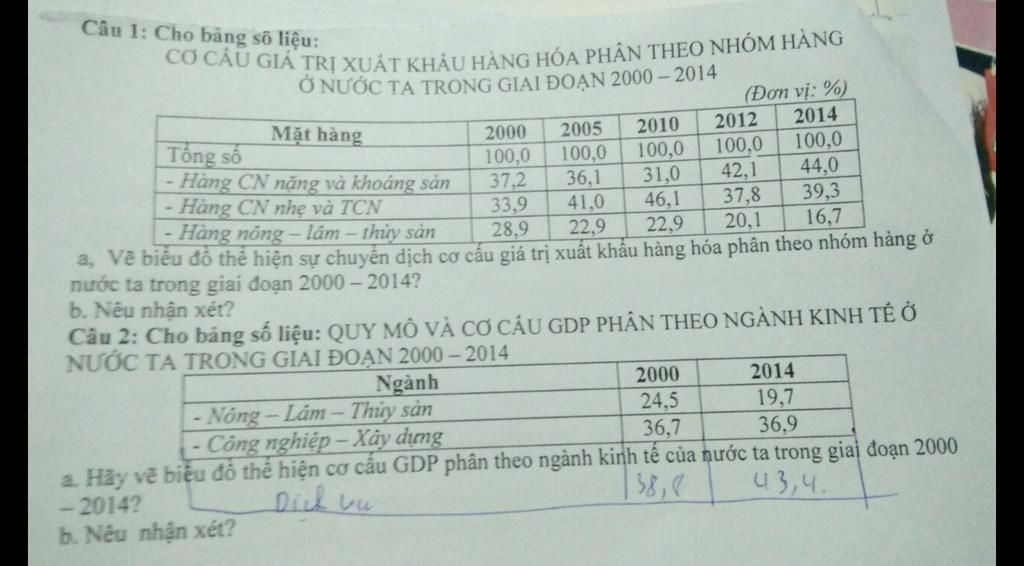 Câu 1: Cho bảng số liệu:
CƠ CẤU GIÁ TRỊ XUẤT KHẨU HÀNG HÓA PHÂN THEO NHÓM HÀNG
Ở NƯỚC TA TRONG GIAI ĐOẠN 2000 – 2014
(Đơn vị: %)
Mặt hàng 2000 2005 2010 2012 2014
Tổng số 100,0 100,0 100,0 100,0 100,0
- Hàng CN nặng và khoáng sản 37,2 36,1 31,0 42,1 44,0
- Hàng CN nhẹ và TCN 33,9 41,0 46,1 37,8 39,3
- Hàng nông – lâm – thủy sản 28,9 22,9 22,9 20,1 16,7
a, Vẽ biểu đồ thể hiện sự chuyển dịch cơ cấu giá trị xuất khẩu hàng hóa phân theo nhóm hàng ở
nước ta trong giai đoạn 2000 – 2014?
b. Nêu nhận xét?
Câu 2: Cho bảng số liệu: QUY MÔ VÀ CƠ CẤU GDP PHÂN THEO NGÀNH KINH TẾ Ở
NƯỚC TA TRONG GIAI ĐOẠN 2000 – 2014
Ngành 2000 2014
- Nông – Lâm – Thủy sản 24,5 19,7
- Công nghiệp – Xây dựng 36,7 36,9
a. Hãy vẽ biểu đồ thể hiện cơ cấu GDP phân theo ngành kinh tế của nước ta trong giai đoạn 2000
– 2014?
Dịch vụ 38,8 43,4.
b. Nêu nhận xét?